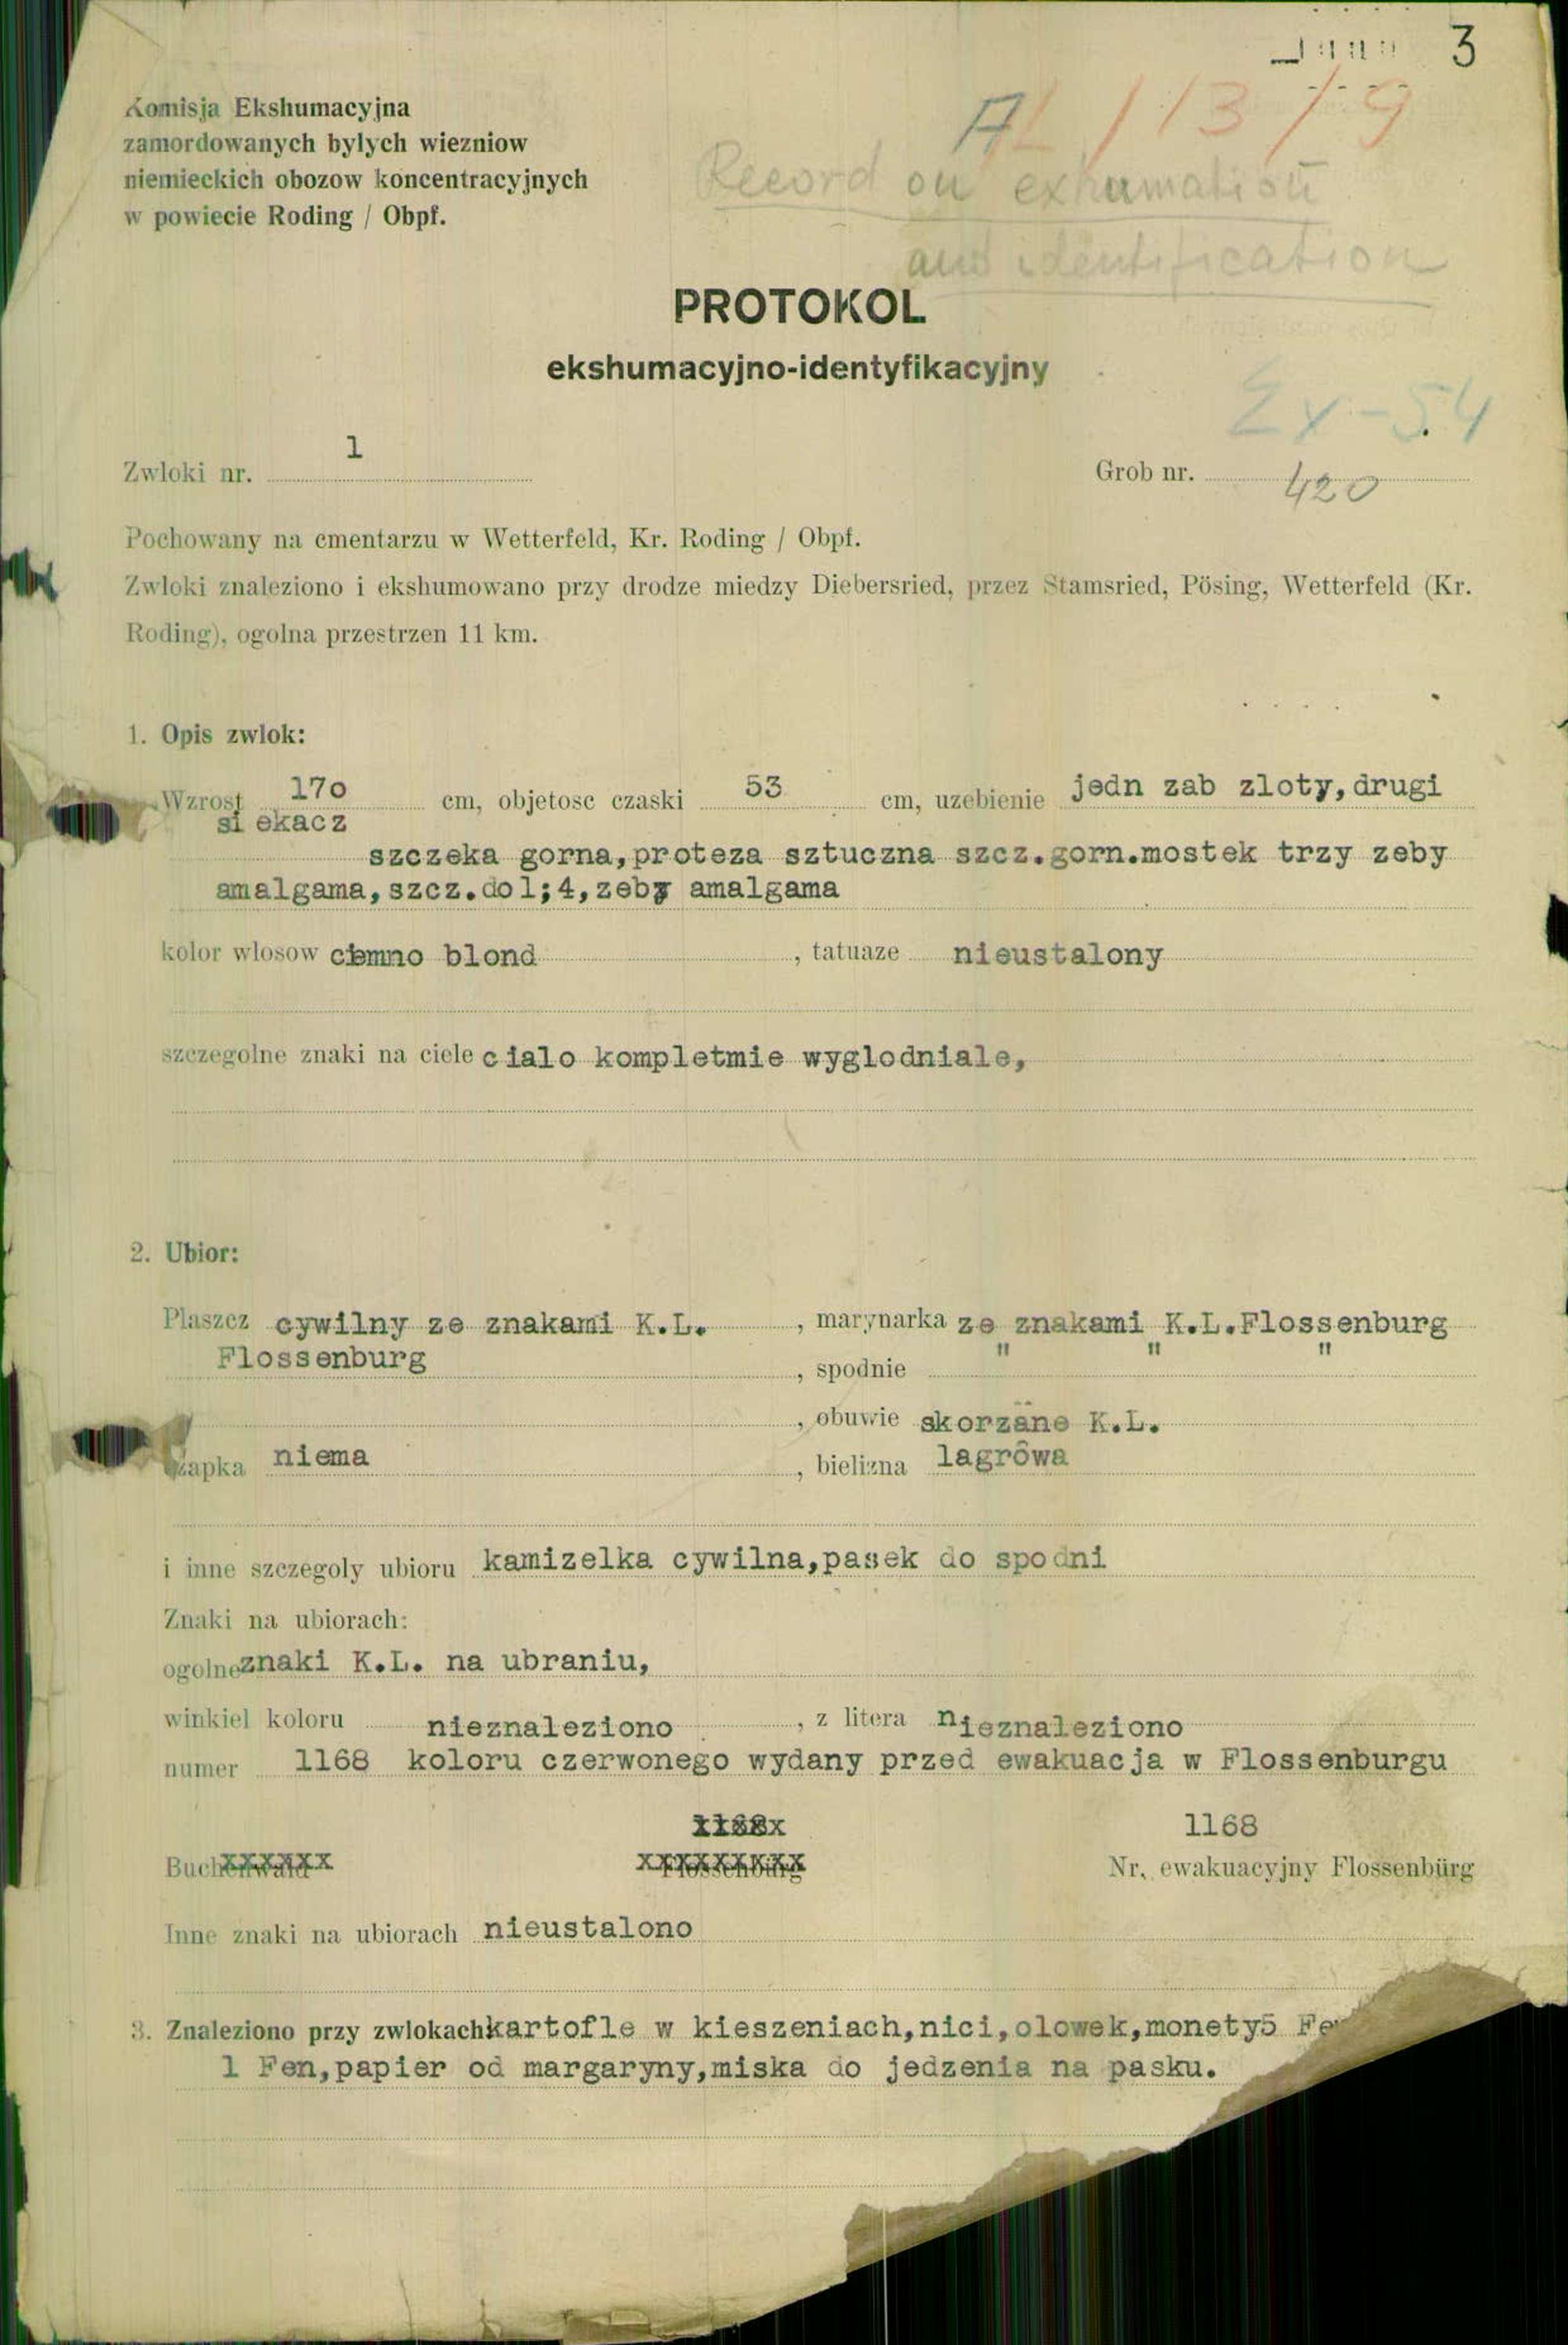 3
AL / 13 / 9
Komisja Ekshumacyjna
zamordowanych bylych wiezniow
niemieckich obozow koncentracyjnych
w powiecie Roding / Obpf.
Record on exhumation
and identification
PROTOKOL
ekshumacyjno-identyfikacyjny
Ex-54
Zwloki nr. 1 Grob nr. 420
Pochowany na cmentarzu w Wetterfeld, Kr. Roding / Obpf.
Zwloki znaleziono i ekshumowano przy drodze miedzy Diebersried, przez Stamsried, Pösing, Wetterfeld (Kr.
Roding), ogolna przestrzen 11 km.
1. Opis zwlok:
Wzrost 170 cm, objetosc czaski 53 cm, uzebienie jedn zab zloty,drugi
siekacz
szczeka gorna,proteza sztuczna szcz.gorn.mostek trzy zeby
amalgama,szcz.dol;4,zeby amalgama
kolor wlosow ciemno blond, tatuaze nieustalony
szczegolne znaki na ciele cialo kompletmie wyglodniale,
2. Ubior:
Plaszcz cywilny ze znakami K.L. , marynarka ze znakami K.L.Flossenburg
Flossenburg , spodnie " " "
, obuwie skorzane K.L.
Czapka niema , bielizna lagrôwa
i inne szczegoly ubioru kamizelka cywilna,pasek do spodni
Znaki na ubiorach:
ogolne znaki K.L. na ubraniu,
winkiel koloru nieznaleziono , z litera nieznaleziono
numer 1168 koloru czerwonego wydany przed ewakuacja w Flossenburgu
1168
Buchenwald Flossenbürg Nr. ewakuacyjny Flossenbürg
Inne znaki na ubiorach nieustalono
3. Znaleziono przy zwlokach kartofle w kieszeniach,nici,olowek,monety5 Fe
1 Fen,papier od margaryny,miska do jedzenia na pasku.